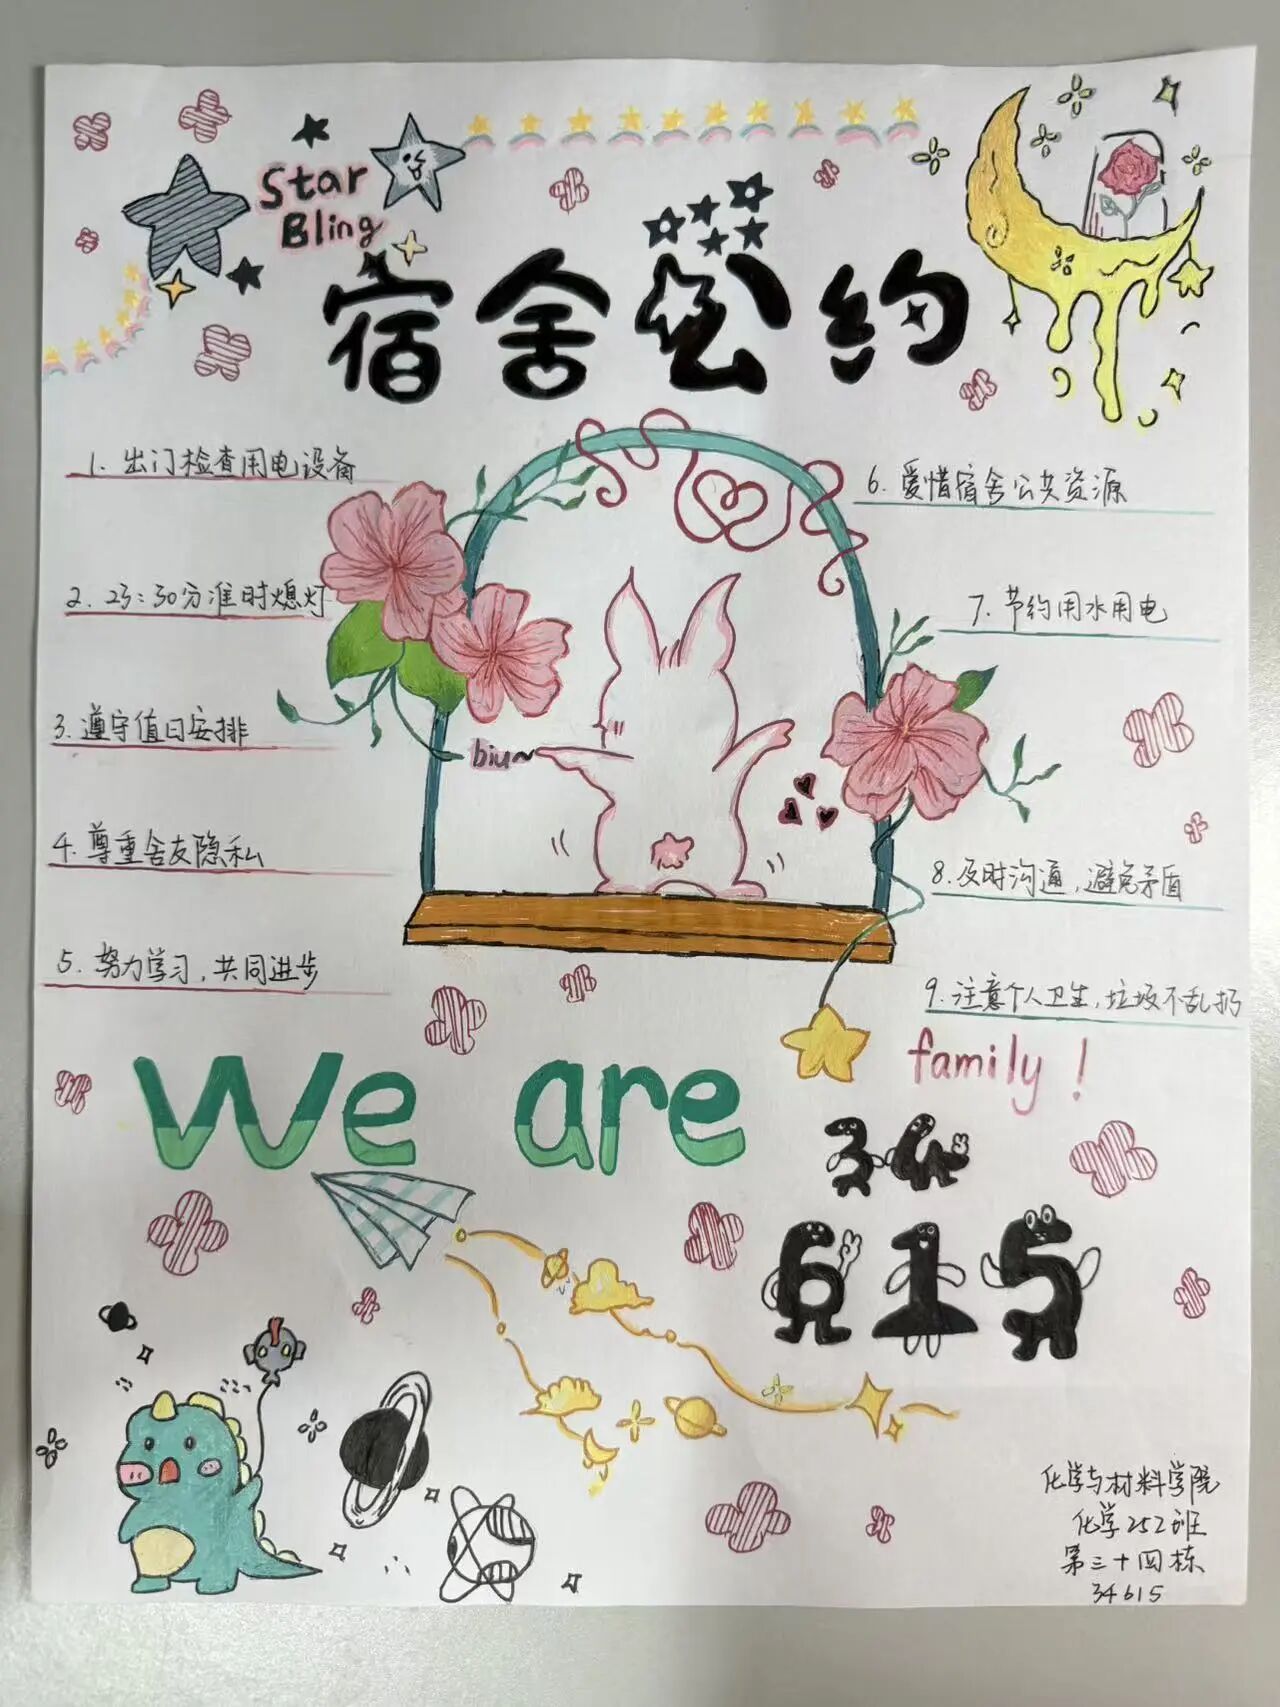 Star
Bling
宿舍公约
1. 出门检查用电设备
2. 23:30分准时熄灯
3. 遵守值日安排
4. 尊重舍友隐私
5. 努力学习,共同进步
6. 爱惜宿舍公共资源
7. 节约用水用电
8. 及时沟通,避免矛盾
9. 注意个人卫生,垃圾不乱扔
biu~
We are
family!
34
615
化学与材料学院
化学252班
第三十四栋
34615